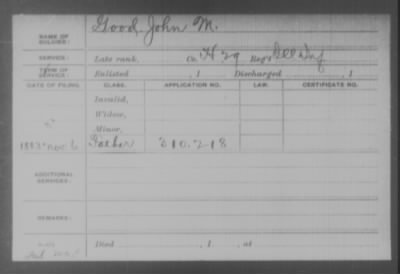 Good, John M.
NAME OF SOLDIER:
SERVICE: Late rank, Co. H 29 Reg't Ill Inf
TERM OF SERVICE: Enlisted , 1 Discharged , 1
DATE OF FILING. CLASS. APPLICATION NO. LAW. CERTIFICATE NO.
Invalid,
Widow,
Minor,
1883 Nov 6 Father 310.218
ADDITIONAL SERVICES:
REMARKS:
Died , 1 , at